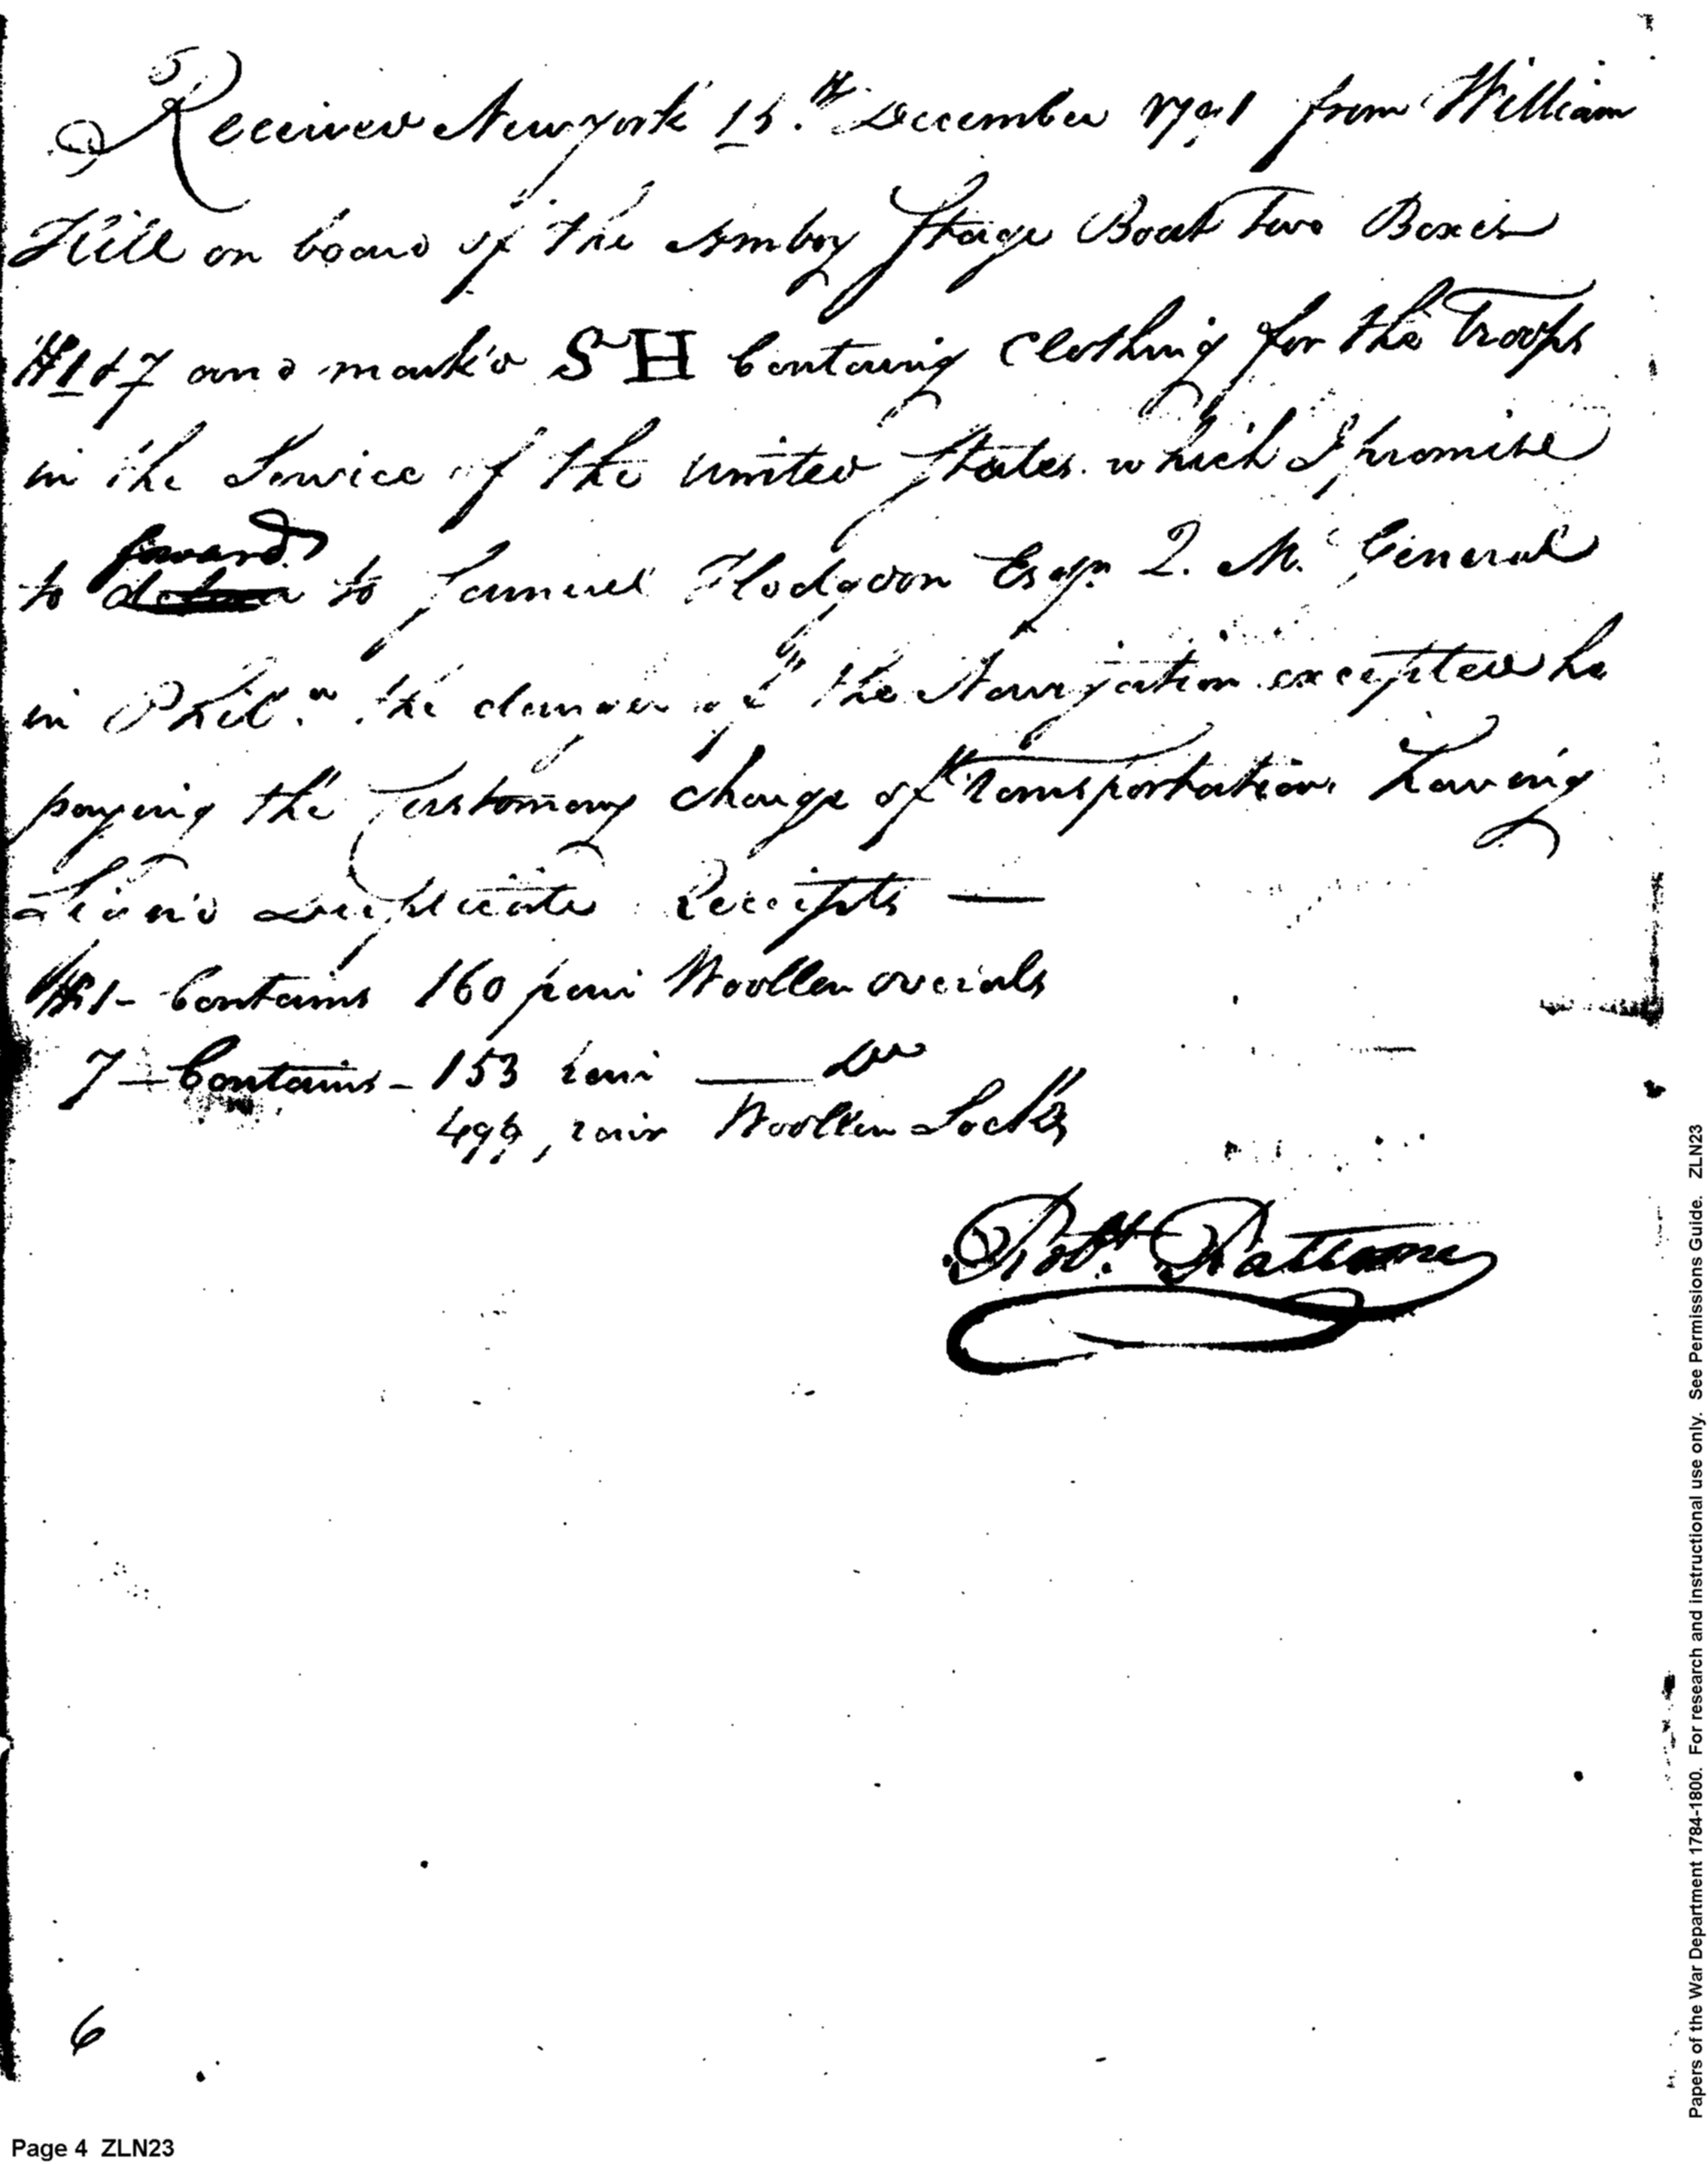 Received New york 15.th December 1791 from William
Hill on board of the Amboy Stage Boat Two Boxes
N 1 & 7 and mark'd SH Containg Clothing for the Troops
in the Service of the united States which I promise
forward
to to Samuel Hodgdon Esqr. Q. M. General
in Phila. the danger of the Navigation excepted he
paying the Customary Charge of Transportation Having
Sign'd Duplicate Receipts —
N 1 - Contains 160 pair Woollen overals
7 — Contains - 153 pair — Do
499 pair Woollen Socks
Robt. Pattone
6
Page 4 ZLN23
Papers of the War Department 1784-1800. For research and instructional use only. See Permissions Guide. ZLN23